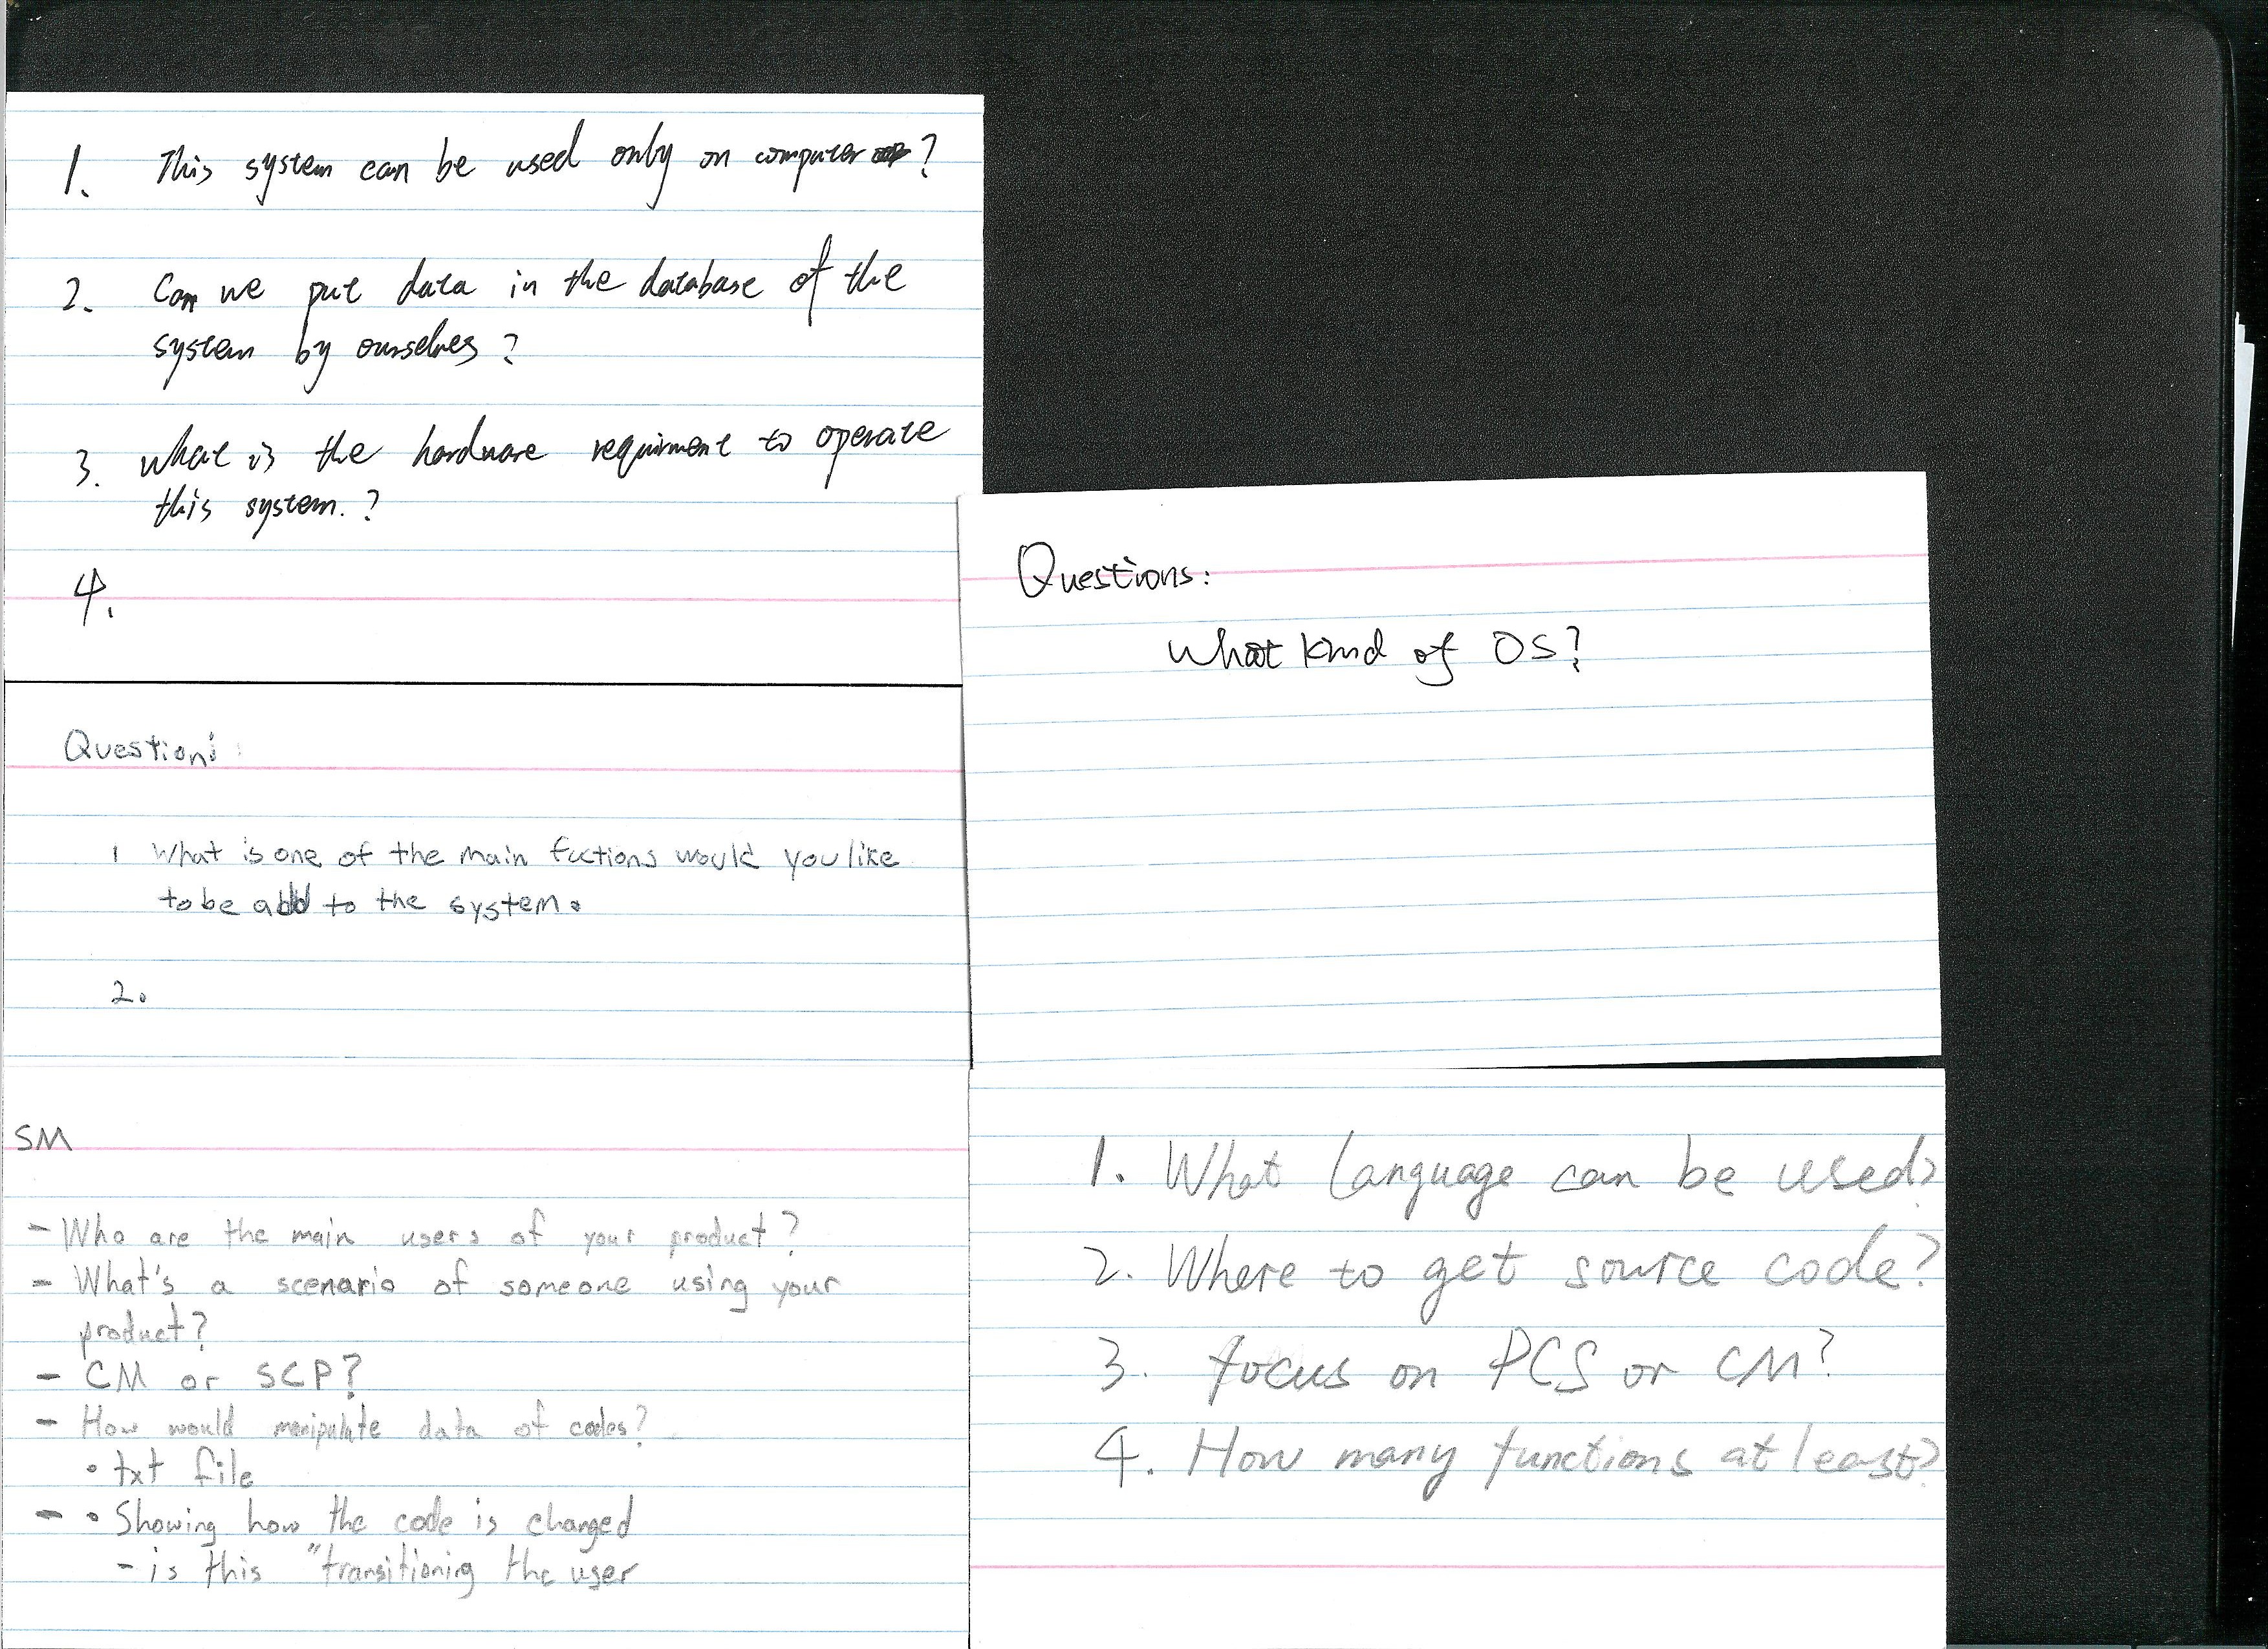 1. This system can be used only on computer ?
2. Can we put data in the database of the
system by ourselves ?
3. what is the hardware requirment to operate
this system. ?
4.
Questions:
what kind of OS?
Question:
1 What is one of the main fuctions would you like
to be add to the system.
2.
SM
- Who are the main users of your product?
- What's a scenario of someone using your
product?
- CM or SCP?
- How would manipulate data of codes?
• txt file
- • Showing how the code is changed
- is this "transitioning the user
1. What language can be used?
2. Where to get source code?
3. focus on PCS or CM?
4. How many functions at least?